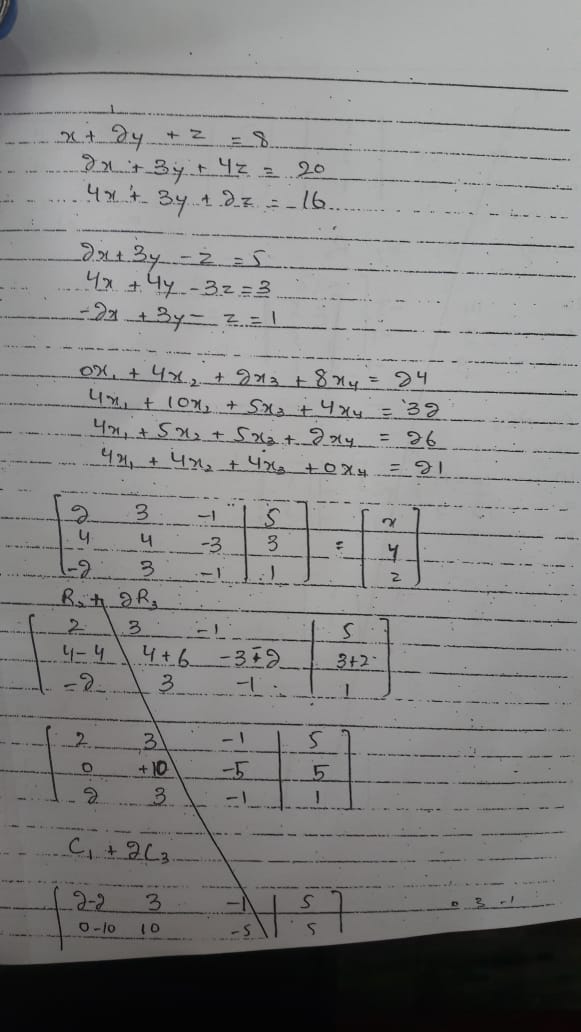 x + 2y + z = 8
2x + 3y + 4z = 20
4x + 3y + 2z = 16
2x + 3y - z = 5
4x + 4y - 3z = 3
-2x + 3y - z = 1
0x₁ + 4x₂ + 2x₃ + 8x₄ = 24
4x₁ + 10x₂ + 5x₃ + 4x₄ = 32
4x₁ + 5x₂ + 5x₃ + 2x₄ = 26
4x₁ + 4x₂ + 4x₃ + 0x₄ = 21
2 3 -1 | 5 x
4 4 -3 | 3 = y
-2 3 -1 | 1 z
R₂ + 2R₃
2 3 -1 | 5
4-4 4+6 -3-2 | 3+2
-2 3 -1 | 1
2 3 -1 | 5
0 +10 -5 | 5
2 3 -1 | 1
C₁ + 2C₃
2-2 3 -1 | 5 0 3 -1
0-10 10 -5 | 5